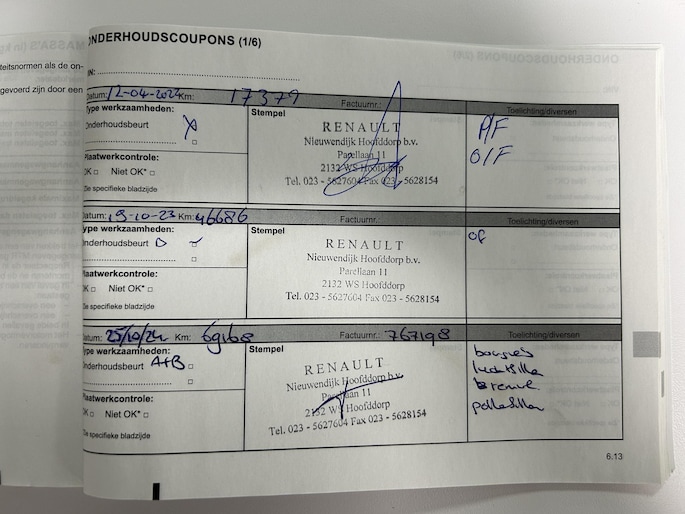 MASSA'S (in kg
teitsnormen als de on-
gevoerd zijn door een
ONDERHOUDSCOUPONS (1/6)
IN:
Datum: Km: 17379 Factuurnr.: Toelichting/diversen
Type werkzaamheden:
Stempel
Onderhoudsbeurt
RENAULT
Nieuwendijk Hoofddorp b.v.
Parellaan 11
2132 WS Hoofddorp
Tel. 023 - 5627604 Fax 023 - 5628154
P/F
O/F
Plaatwerkcontrole:
OK □ Niet OK* □
De specifieke bladzijde
Datum: Km: 46686 Factuurnr.: Toelichting/diversen
Type werkzaamheden:
Stempel
Onderhoudsbeurt
RENAULT
Nieuwendijk Hoofddorp b.v.
Parellaan 11
2132 WS Hoofddorp
Tel. 023 - 5627604 Fax 023 - 5628154
OF
Plaatwerkcontrole:
OK □ Niet OK* □
De specifieke bladzijde
Datum: 25/10/24 Km: 69168 Factuurnr.: 767198 Toelichting/diversen
Type werkzaamheden:
Stempel
Onderhoudsbeurt A+B □
RENAULT
Nieuwendijk Hoofddorp b.v.
Parellaan 11
2132 WS Hoofddorp
Tel. 023 - 5627604 Fax 023 - 5628154
bougies
Plaatwerkcontrole:
OK □ Niet OK* □
De specifieke bladzijde
6.13